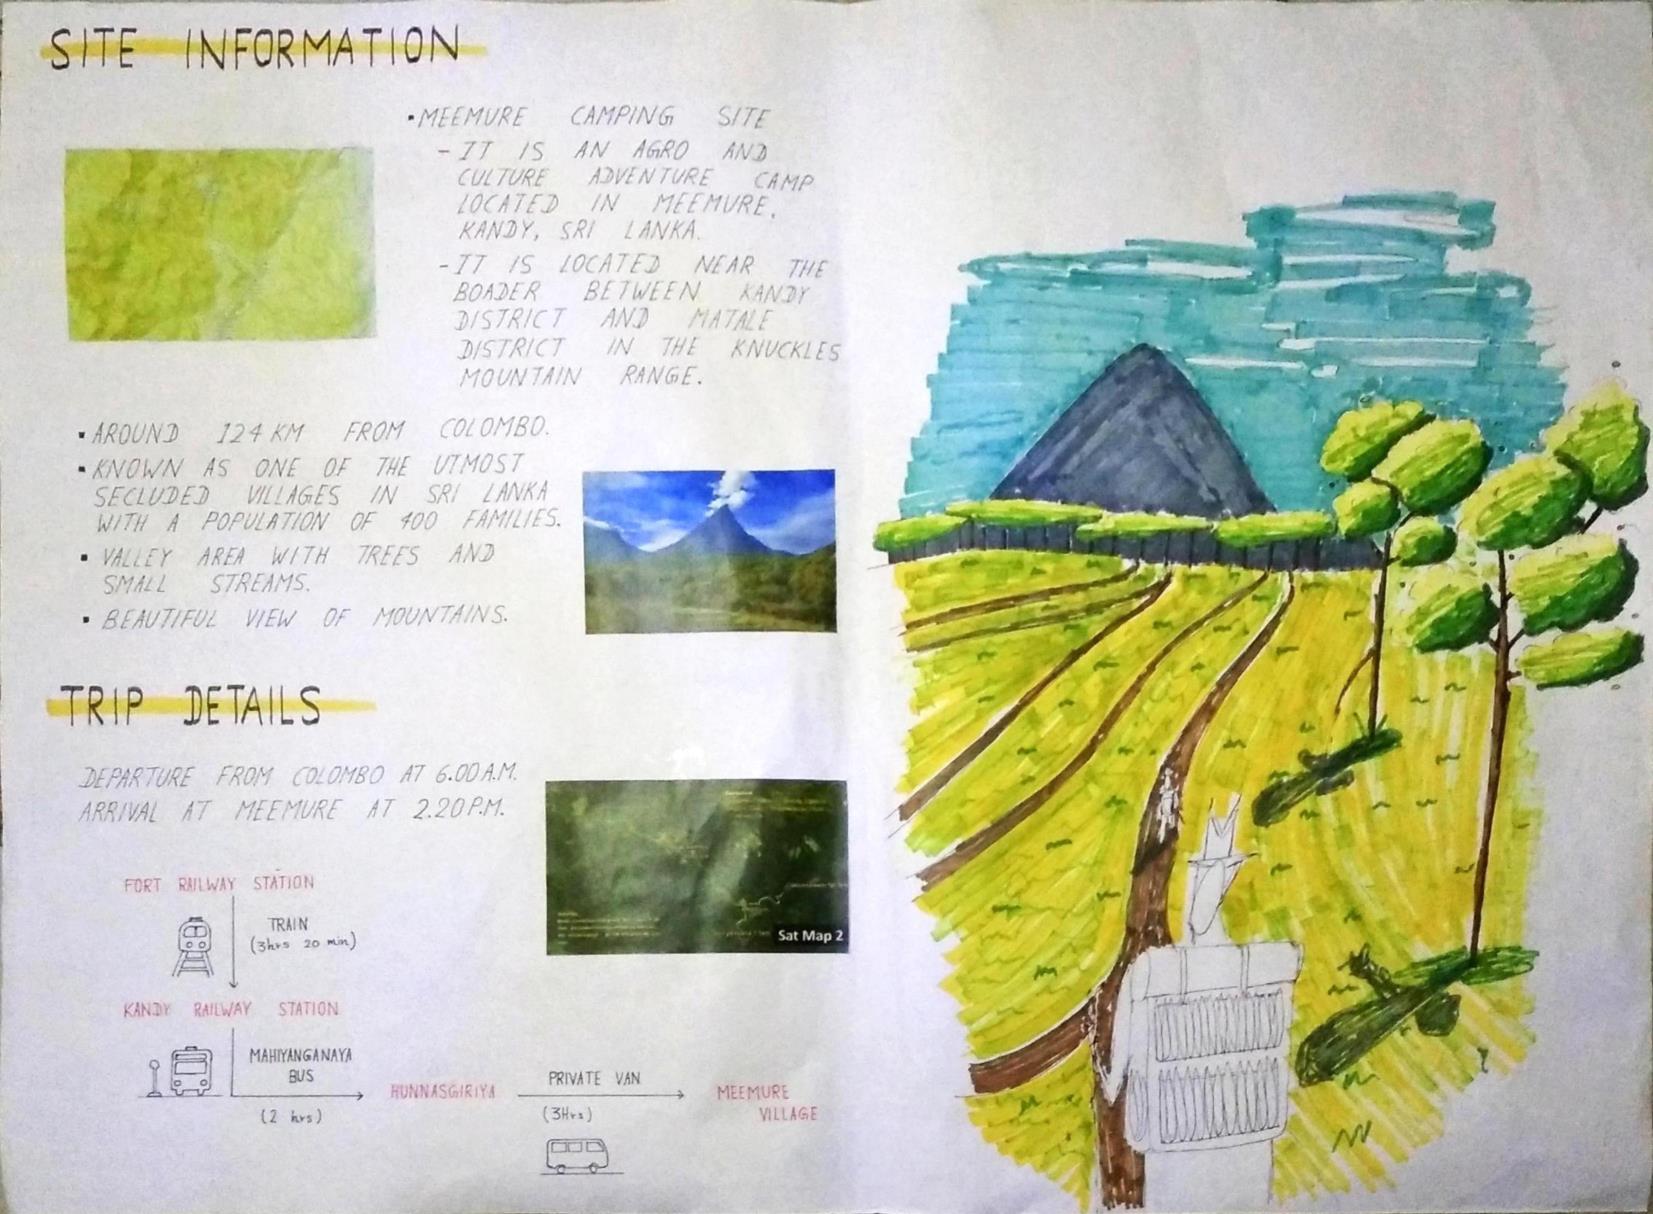 SITE INFORMATION
▪MEEMURE CAMPING SITE
-IT IS AN AGRO AND
CULTURE ADVENTURE CAMP
LOCATED IN MEEMURE,
KANDY, SRI LANKA.
-IT IS LOCATED NEAR THE
BOADER BETWEEN KANDY
DISTRICT AND MATALE
DISTRICT IN THE KNUCKLES
MOUNTAIN RANGE.
▪AROUND 124 KM FROM COLOMBO.
▪KNOWN AS ONE OF THE UTMOST
SECLUDED VILLAGES IN SRI LANKA
WITH A POPULATION OF 400 FAMILIES.
▪VALLEY AREA WITH TREES AND
SMALL STREAMS.
▪BEAUTIFUL VIEW OF MOUNTAINS.
TRIP DETAILS
DEPARTURE FROM COLOMBO AT 6.00 A.M.
ARRIVAL AT MEEMURE AT 2.20 P.M.
Sat Map 2
FORT RAILWAY STATION
TRAIN
(3hrs 20 min)
KANDY RAILWAY STATION
MAHIYANGANAYA
BUS
(2 hrs)
HUNNASGIRIYA
PRIVATE VAN
(3Hrs)
MEEMURE
VILLAGE